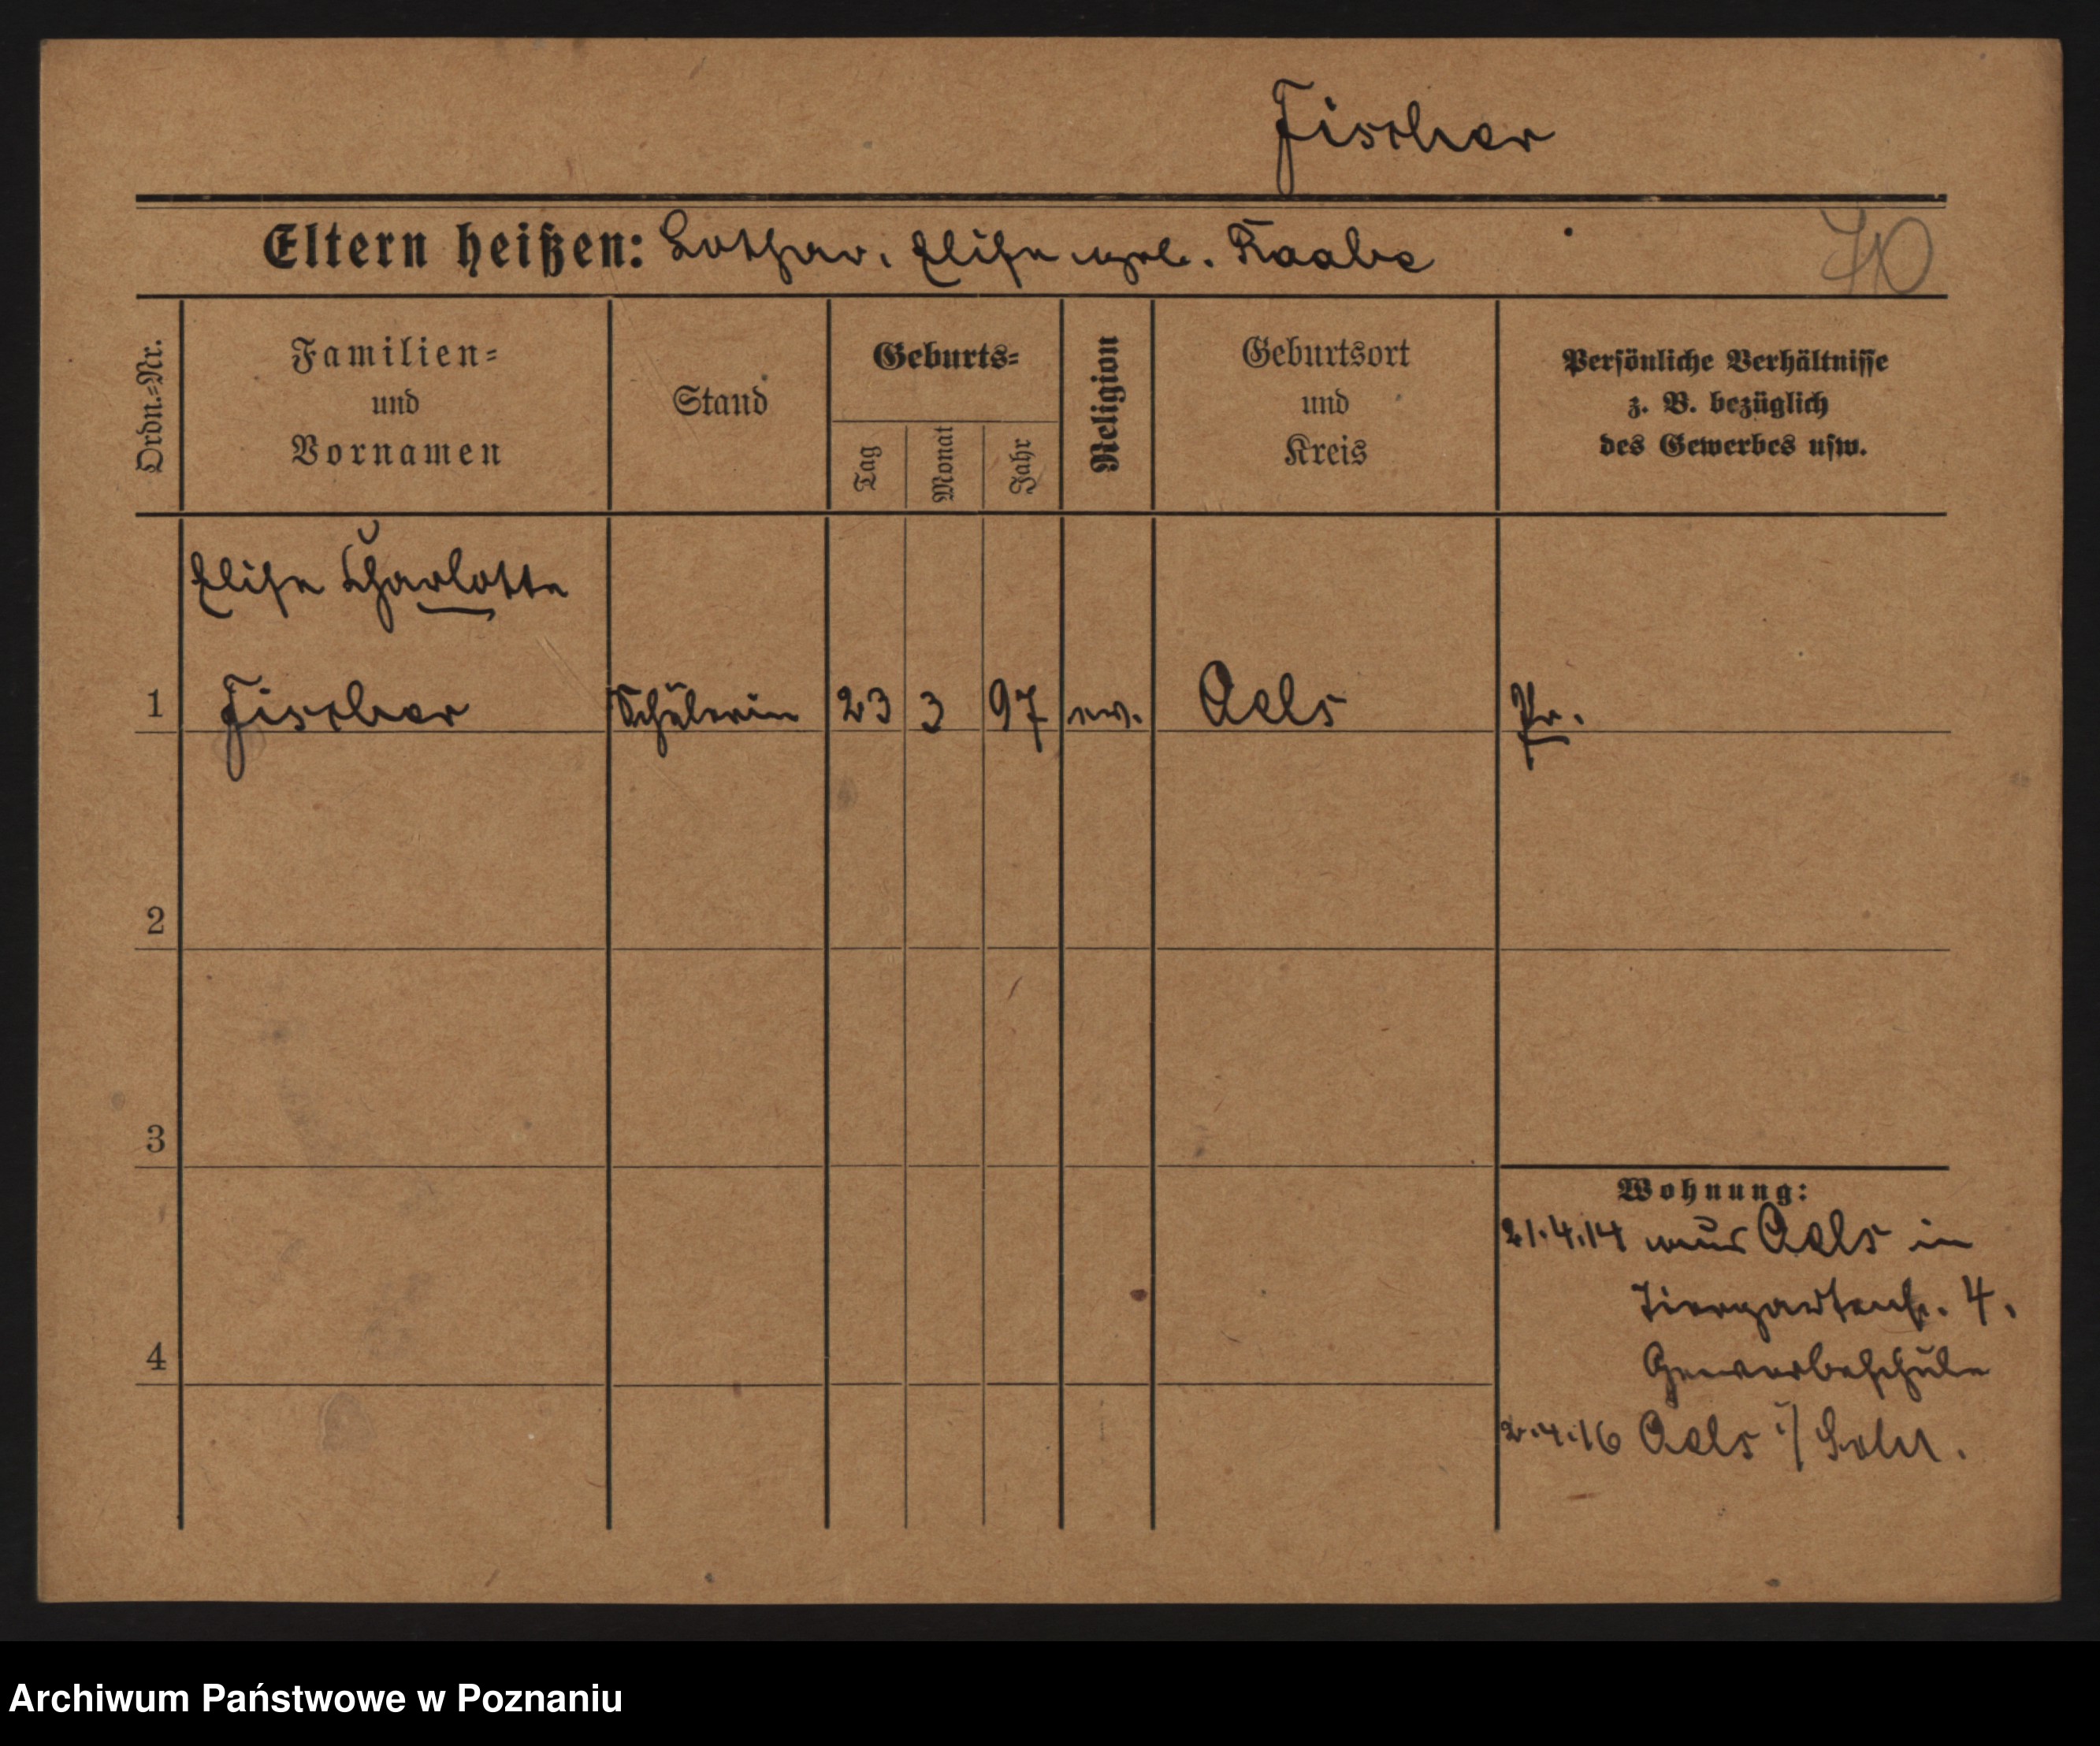 Fischer
Eltern heißen: Lothar, Elise geb. Raabe
70
Ordn.=Nr.
Familien=
und
Vornamen
Stand
Geburts=
Tag
Monat
Jahr
Religion
Geburtsort
und
Kreis
Persönliche Verhältnisse
z. B. bezüglich
des Gewerbes usw.
Elise Charlotte
1 Fischer Schülerin 23 3 97 ev. Oels Pr.
2
3
4
Wohnung:
21.4.14 aus Oels in
Tiergartenstr. 4.
Gewerbeschule
2.4.16 Oels i/
Archiwum Państwowe w Poznaniu